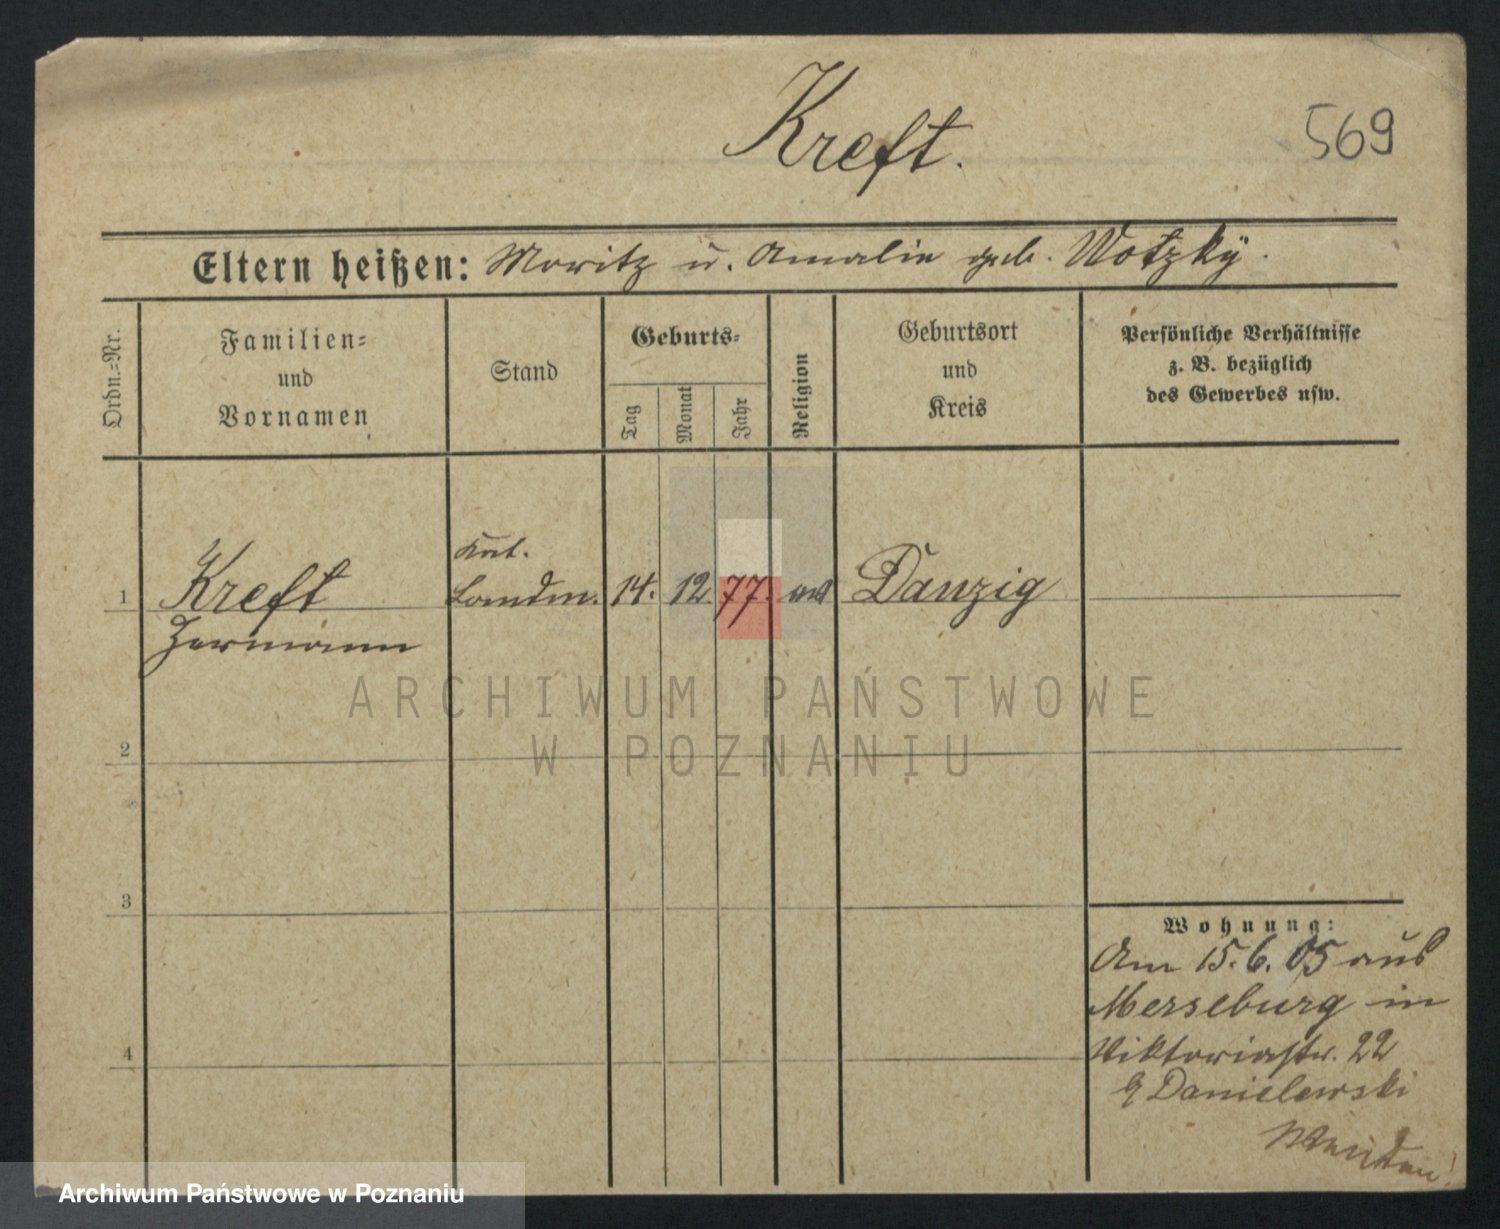 Kreft.
569
Eltern heißen: Moritz u. Amalie geb. Wotzky.
Ordn.=Nr.
Familien=
und
Vornamen
Stand
Geburts=
Tag
Monat
Jahr
Religion
Geburtsort
und
Kreis
Persönliche Verhältnisse
z. B. bezüglich
des Gewerbes usw.
1
Kreft
Hermann
Landm.
14.
12.
77.
Danzig
2
3
4
Wohnung:
Am 15.6.05 aus
Merseburg in
Viktoriastr. 22
Danielewski
Wenden!
ARCHIWUM PAŃSTWOWE
W POZNANIU
Archiwum Państwowe w Poznaniu